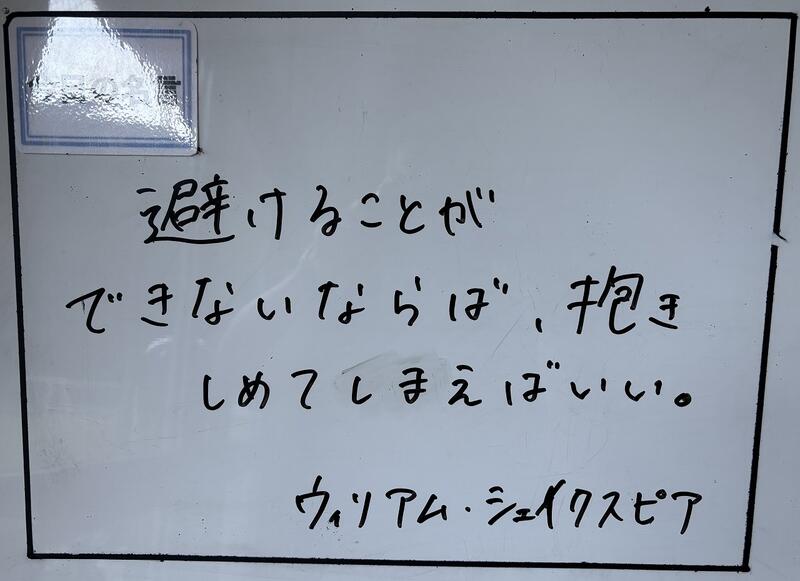 今日の名言
避けることが
できないならば、抱き
しめてしまえばいい。
ウィリアム・シェイクスピア